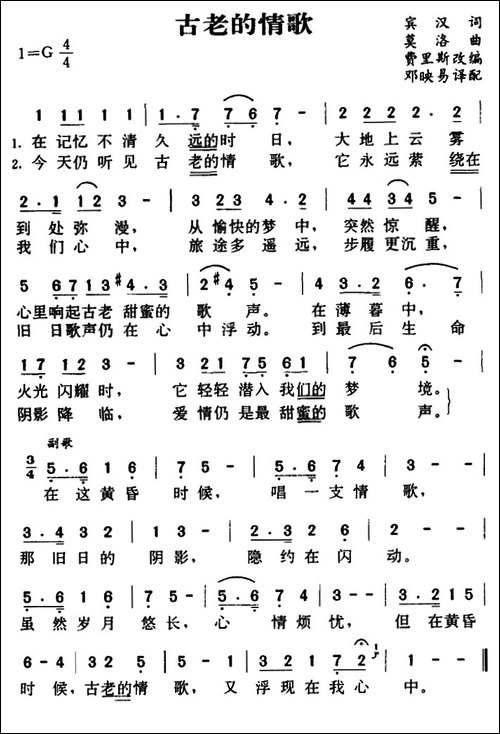 古老的情歌
1=G 4/4
宾汉 词
莫洛 曲
费里斯改编
邓映易译配
1 11 11 1 1·7 76 7 - | 2 22 2 2·
1. 在记忆不清久远的时日， 大地上云雾
2. 今天仍听见古老的情歌， 它永远萦绕在
2·1 12 3 - | 3 23 4·2 | 2 44 34 5 - |
到处弥漫， 从愉快的梦中， 突然惊醒，
我们心中， 旅途多遥远， 步履更沉重，
5 6713 #4·3 | 2 #4 5 - | 4 3·2 6 7 |
心里响起古老甜蜜的歌声。 在薄暮中，
旧日歌声仍在心中浮动。 到最后生命
17 12 3 - | 3 21 75 61 | 7 6 5 - |
火光闪耀时， 它轻轻潜入我们的梦境。
阴影降临， 爱情仍是最甜蜜的歌声。
副歌
3/4 5·6 1 6 | 7 5 - | 5·6 7 4 | 3 - - |
在这黄昏时候， 唱一支情歌，
3·4 3 2 | 1 3 - | 2·3 2 6 | 2 - - |
那旧日的阴影， 隐约在闪动。
5·6 1 6 | 7 5 - | 5·6 7 4 | 3 - - | 3·2 1 5 |
虽然岁月悠长，心情烦忧， 但在黄昏
6 - 4 | 3 2 5 | 5 - 1 | 2·3 1 7 2 | 1 - - |
时候，古老的情歌，又浮现在我心中。